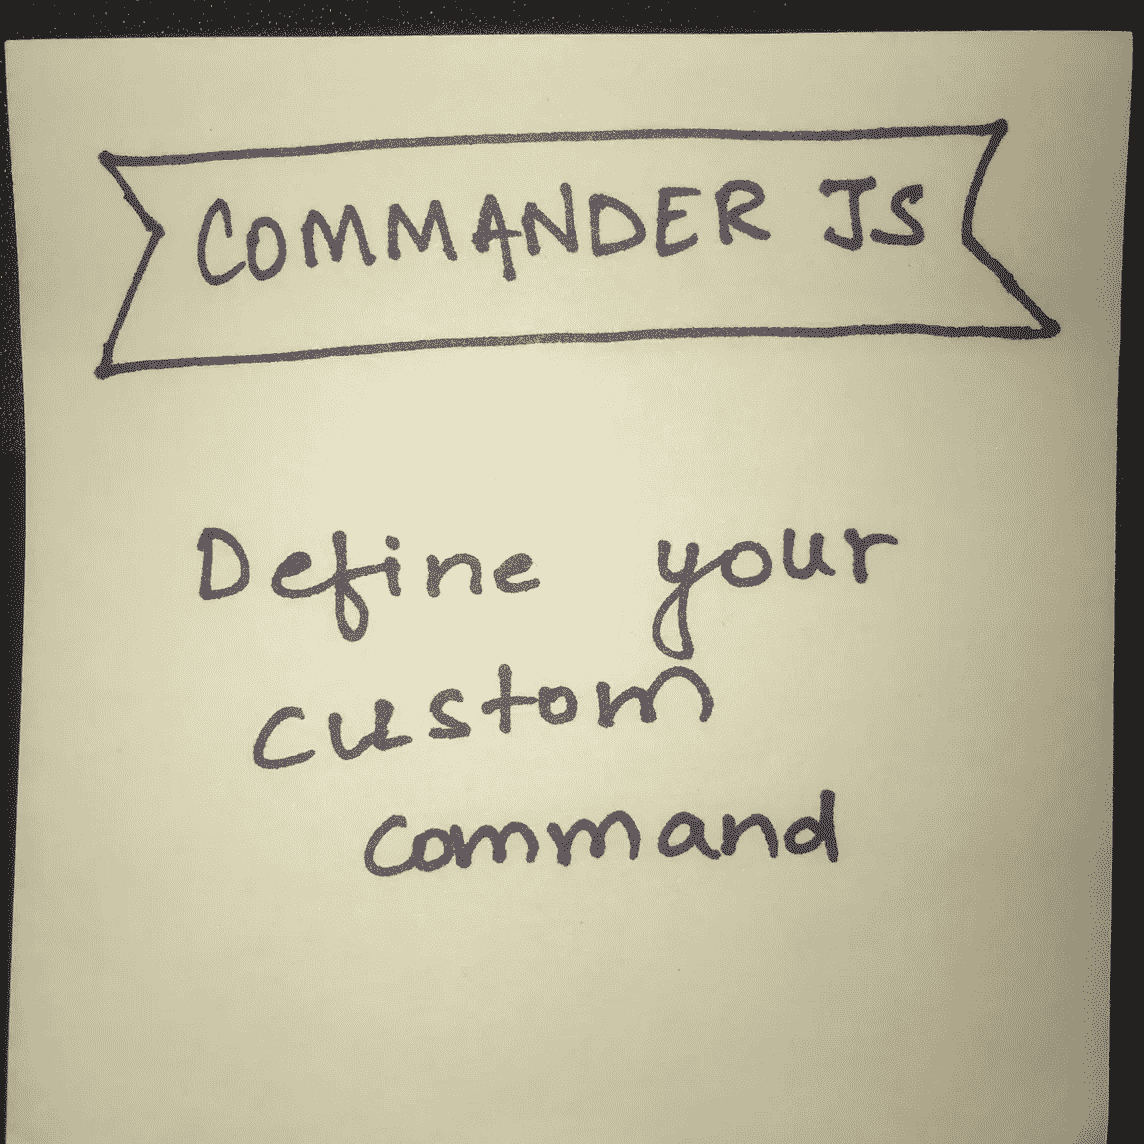 COMMANDER JS
Define your
custom
command